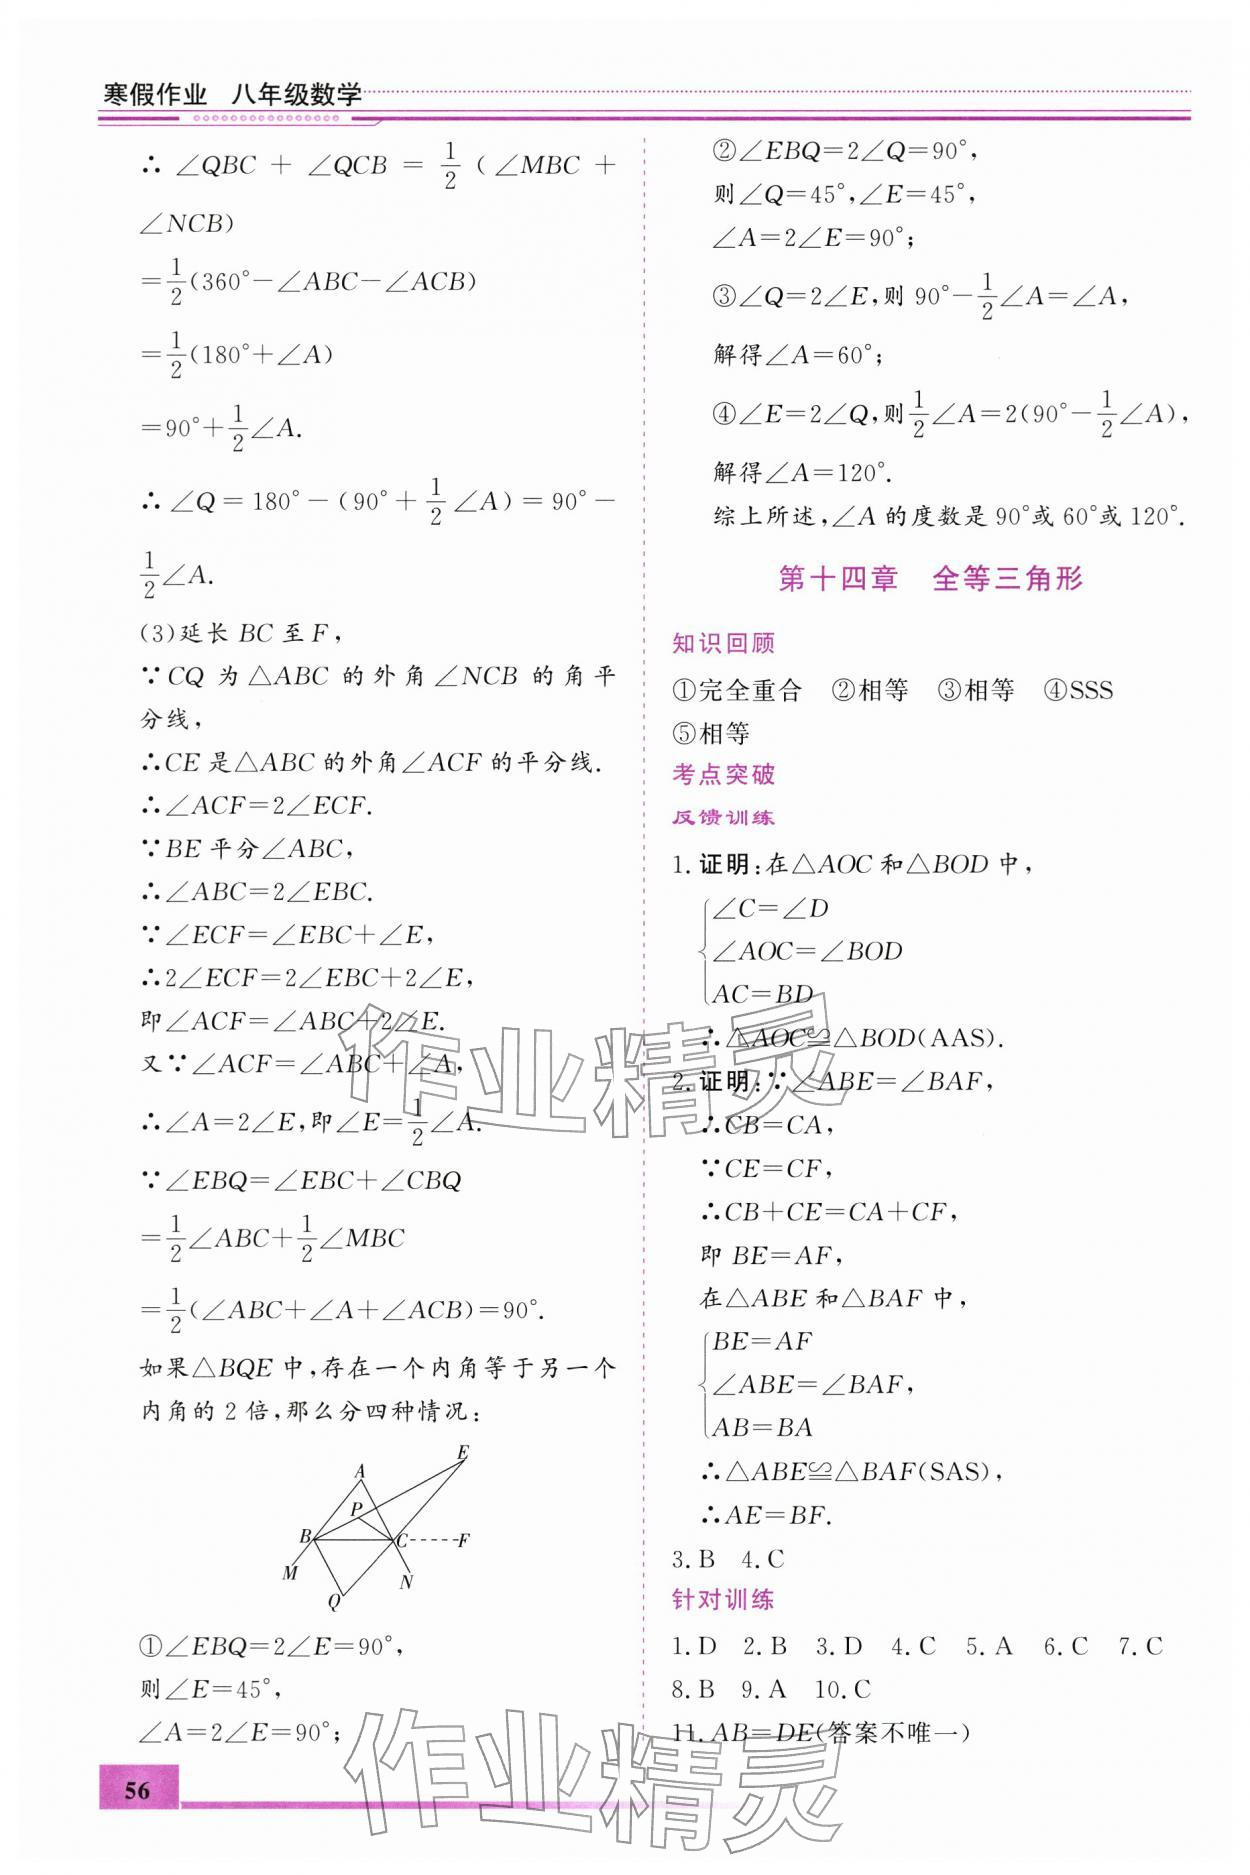 寒假作业 八年级数学
∴ ∠QBC + ∠QCB = 1/2 (∠MBC +
∠NCB)
=1/2(360°-∠ABC-∠ACB)
=1/2(180°+∠A)
=90°+1/2∠A.
∴ ∠Q=180°-(90°+1/2∠A)=90°-
1/2∠A.
(3)延长 BC 至 F,
∵CQ 为 △ABC 的外角∠NCB 的角平
分线,
∴CE 是△ABC 的外角∠ACF 的平分线.
∴∠ACF=2∠ECF.
∵BE 平分∠ABC,
∴∠ABC=2∠EBC.
∵∠ECF=∠EBC+∠E,
∴2∠ECF=2∠EBC+2∠E,
即∠ACF=∠ABC+2∠E.
又∵∠ACF=∠ABC+∠A,
∴∠A=2∠E,即∠E=1/2∠A.
∵∠EBQ=∠EBC+∠CBQ
=1/2∠ABC+1/2∠MBC
=1/2(∠ABC+∠A+∠ACB)=90°.
如果△BQE 中,存在一个内角等于另一个
内角的 2 倍,那么分四种情况:
E
A
P
B
C
F
M
N
Q
①∠EBQ=2∠E=90°,
则∠E=45°,
∠A=2∠E=90°;
②∠EBQ=2∠Q=90°,
则∠Q=45°,∠E=45°,
∠A=2∠E=90°;
③∠Q=2∠E,则 90°-1/2∠A=∠A,
解得∠A=60°;
④∠E=2∠Q,则1/2∠A=2(90°-1/2∠A),
解得∠A=120°.
综上所述,∠A 的度数是 90°或 60°或 120°.
第十四章 全等三角形
知识回顾
①完全重合 ②相等 ③相等 ④SSS
⑤相等
考点突破
反馈训练
1. 证明:在△AOC 和△BOD 中,
∠C=∠D
∠AOC=∠BOD
AC=BD
∴△AOC≌△BOD(AAS).
2. 证明:∵∠ABE=∠BAF,
∴CB=CA,
∵CE=CF,
∴CB+CE=CA+CF,
即 BE=AF,
在△ABE 和△BAF 中,
BE=AF
∠ABE=∠BAF,
AB=BA
∴△ABE≌△BAF(SAS),
∴AE=BF.
3. B 4. C
针对训练
1. D 2. B 3. D 4. C 5. A 6. C 7. C
8. B 9. A 10. C
11. AB=DE(答案不唯一)
56
作业精灵
作业精灵